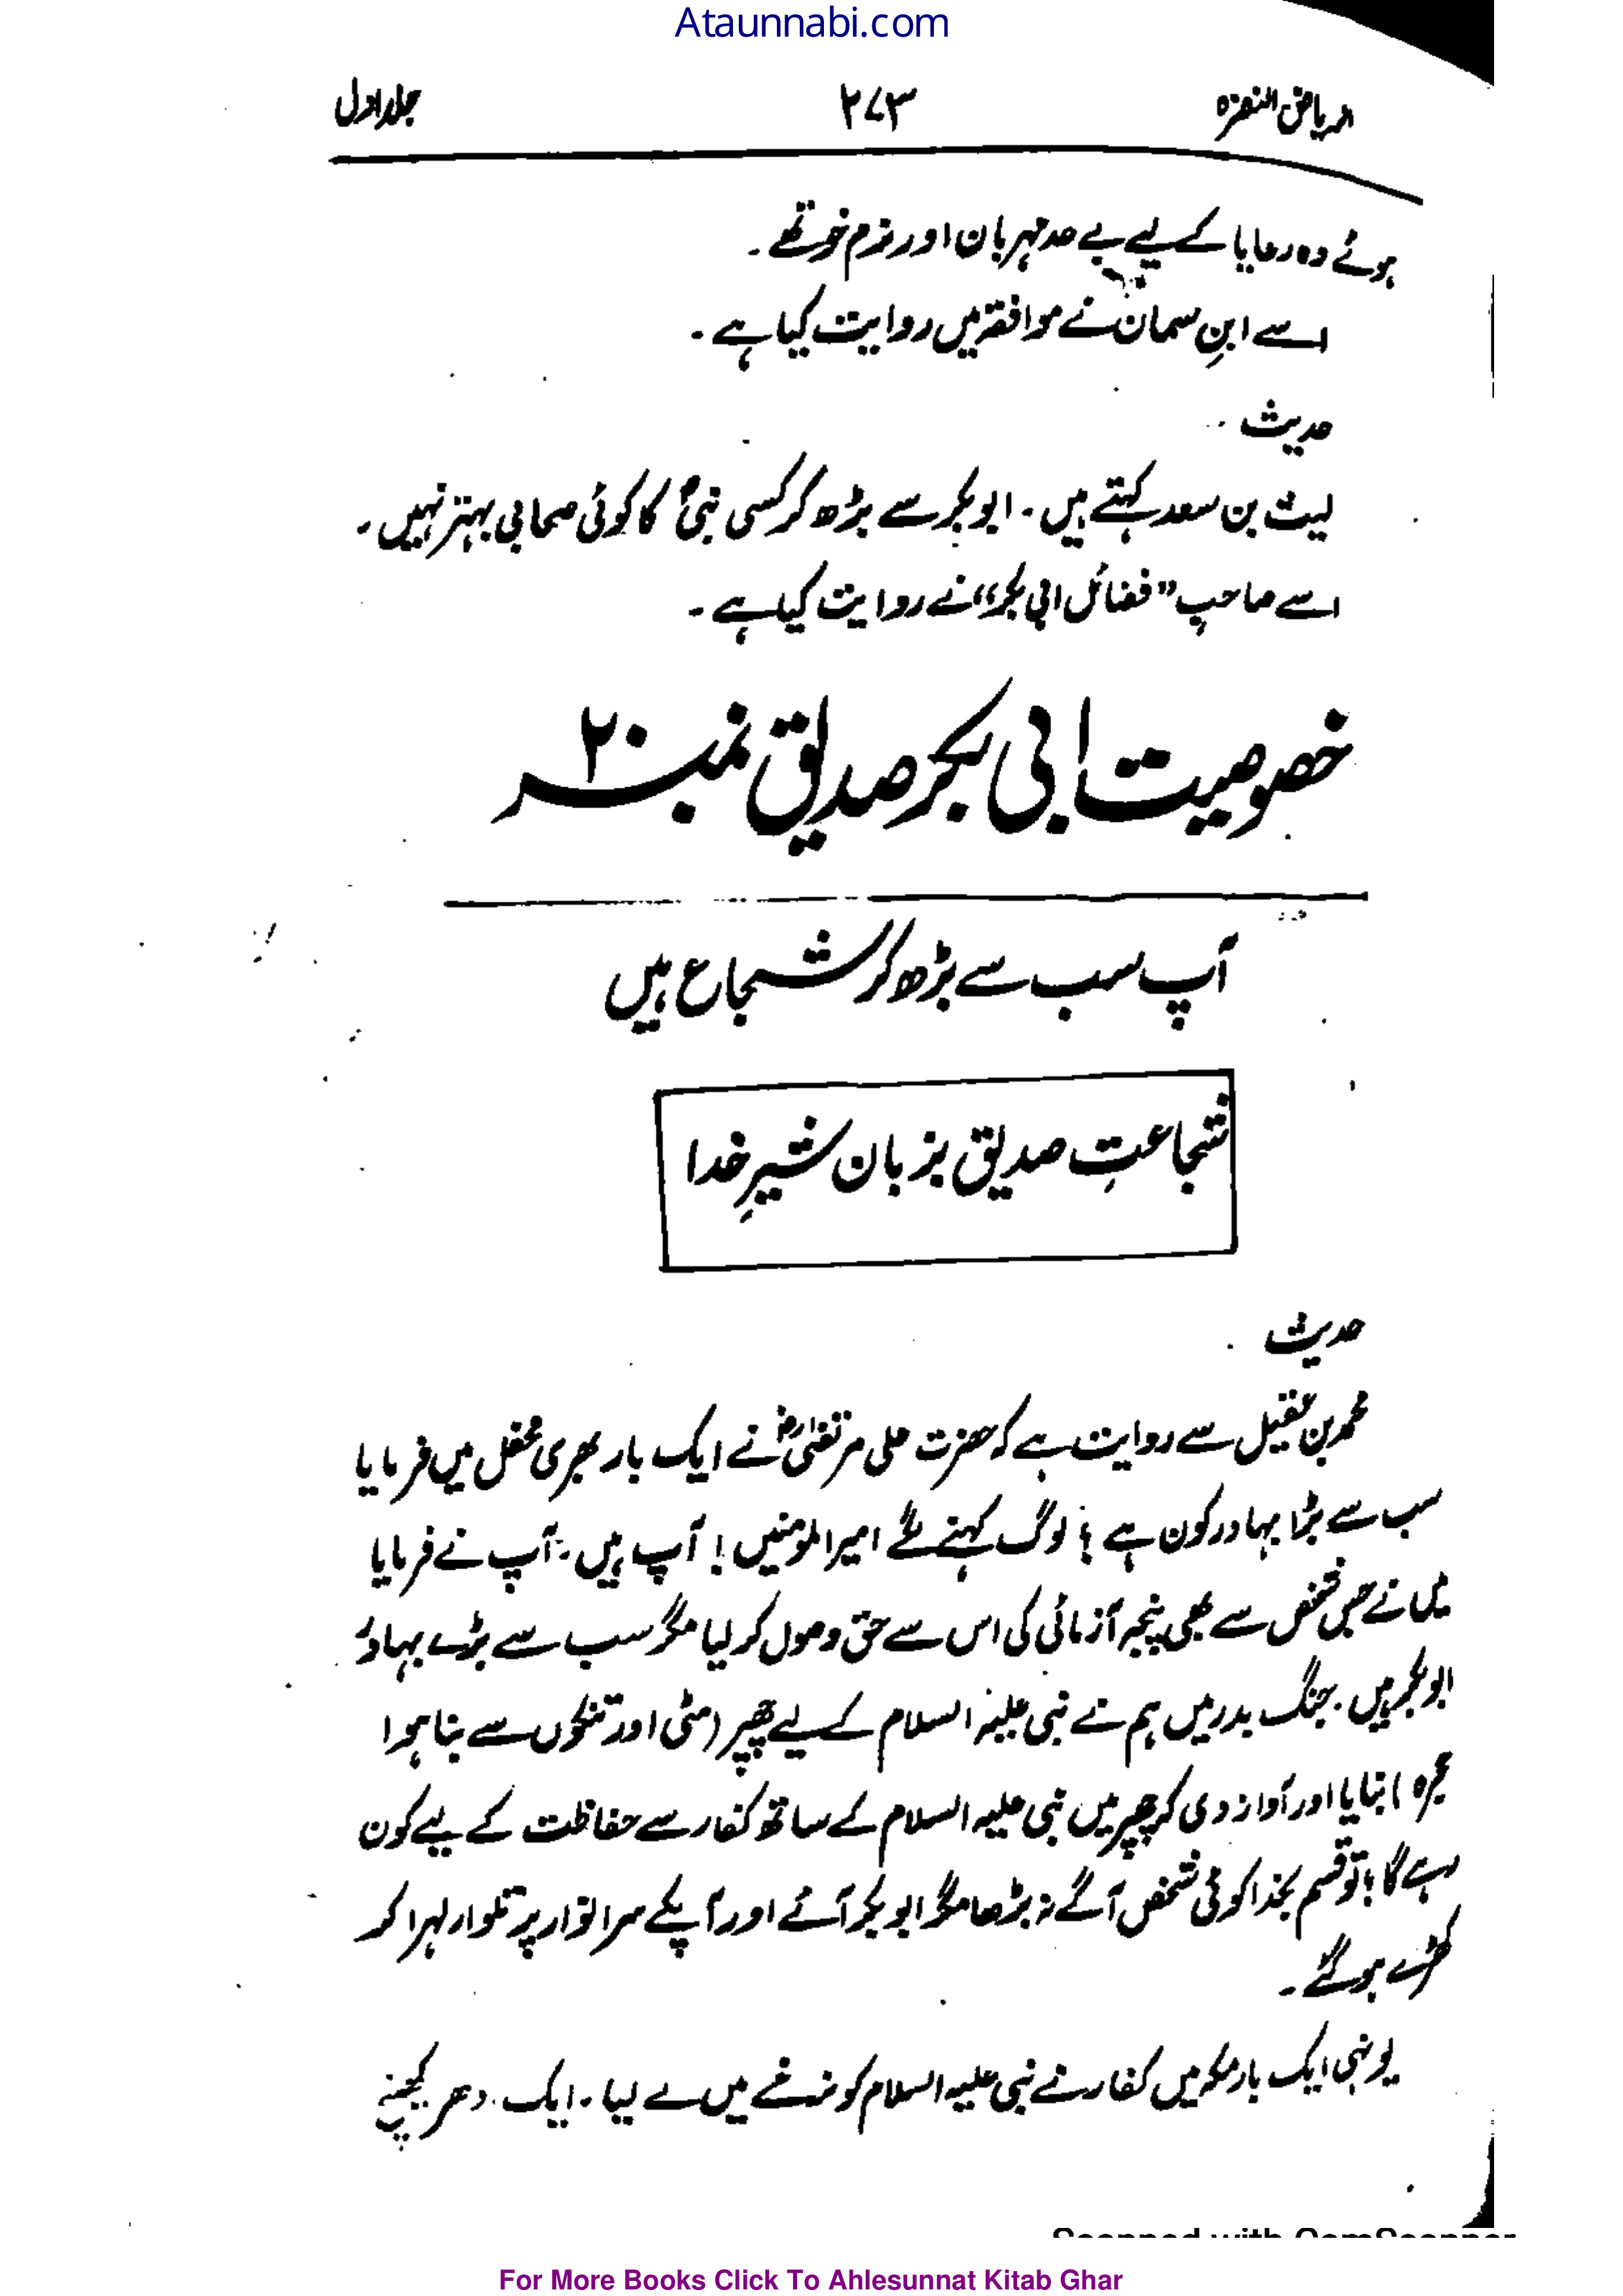 Ataunnabi.com
الریاض النضرہ ۲۷۳ جلد اول
ہوئے وہ رعایا کے لیے بے حد مہربان اور نرم خو تھے۔
اسے ابنِ سمان نے موافقہ میں روایت کیا ہے۔
حدیث
لیث بن سعد کہتے ہیں۔ ابوبکر سے بڑھ کر کسی نبیؑ کا کوئی صحابی بہتر نہیں۔
اسے صاحبِ ”فضائل ابی بکر“ نے روایت کیا ہے۔
خصوصیت ابی بکر صدیق نمبر ۲۰
آپ سب سے بڑھ کر شجاع ہیں
شجاعتِ صدیق بزبان شیرِ خدا
حدیث
محمد بن عقیل سے روایت ہے کہ حضرت علی مرتضیٰؓ نے ایک بار بھری محفل میں فرمایا
سب سے بڑا بہادر کون ہے؟ لوگ کہنے لگے امیرالمومنیں! آپ ہیں۔ آپ نے فرمایا
میں نے جس شخص سے بھی پنجہ آزمائی کی اس سے حق وصول کر لیا مگر سب سے بڑے بہادر
ابوبکر ہیں۔ جنگ بدر میں ہم نے نبی علیہ السلام کے لیے چھپر (مٹی اور تنکوں سے بنا ہوا
حجرہ) بنایا اور آواز دی کہ چھپر میں نبی علیہ السلام کے ساتھ کفار سے حفاظت کے لیے کون
رہے گا؟ تو قسم بخدا کوئی شخص آگے نہ بڑھا مگر ابوبکر آئے اور آپکے سر انوار پر تلوار لہرا کر
کھڑے ہو گئے۔
یونہی ایک بار مکہ میں کفار نے نبی علیہ السلام کو نرغے میں لے لیا۔ ایک ادھر کھینچے
Scanned with CamScanner
For More Books Click To Ahlesunnat Kitab Ghar